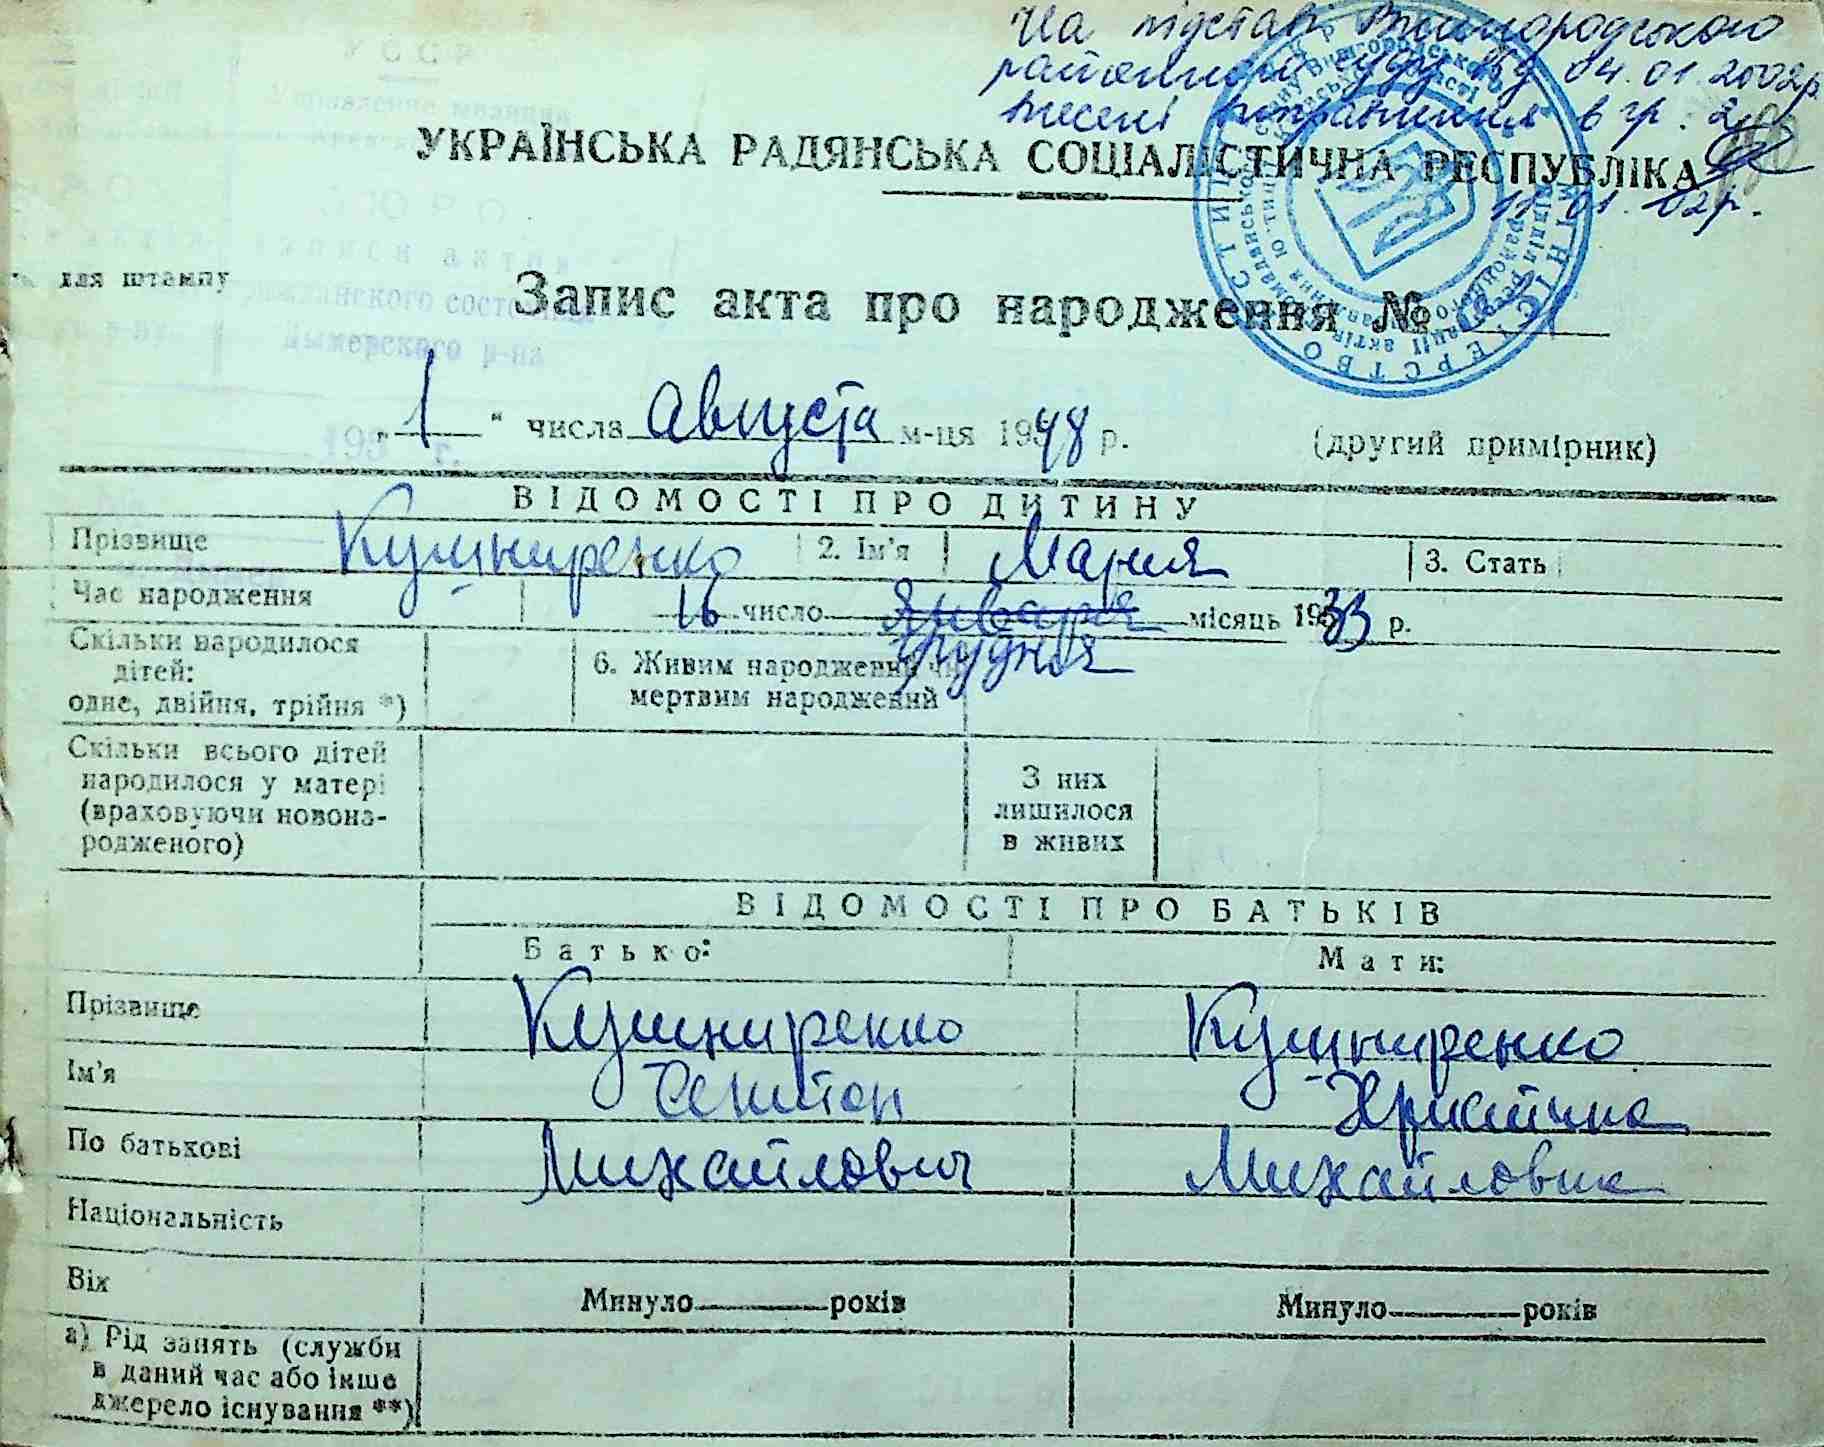 На підставі Вишгородського
районного суду від 04.01.2002р.
внесені виправлення в гр. 2
11.01.02р.
УКРАЇНСЬКА РАДЯНСЬКА СОЦІАЛІСТИЧНА РЕСПУБЛІКА
для штампу
Запис акта про народження №
„ 1 " числа Августа м-ця 1948 р. (другий примірник)
ВІДОМОСТІ ПРО ДИТИНУ
Прізвище Кушниренко 2. Ім'я Мария 3. Стать
Час народження 16 число Января місяць 1933 р.
грудня
Скільки народилося
дітей:
одне, двійня, трійня *)
6. Живим народжений чи
мертвим народжений
Скільки всього дітей
народилося у матері
(враховуючи новона-
родженого)
З них
лишилося
в живих
ВІДОМОСТІ ПРО БАТЬКІВ
Батько: Мати:
Прізвище Кушниренко Кушниренко
Ім'я Христина
По батькові Михайлович Михайловна
Національність
Вік Минуло роківМинуло років
а) Рід занять (служби
в даний час або інше
джерело існування **)